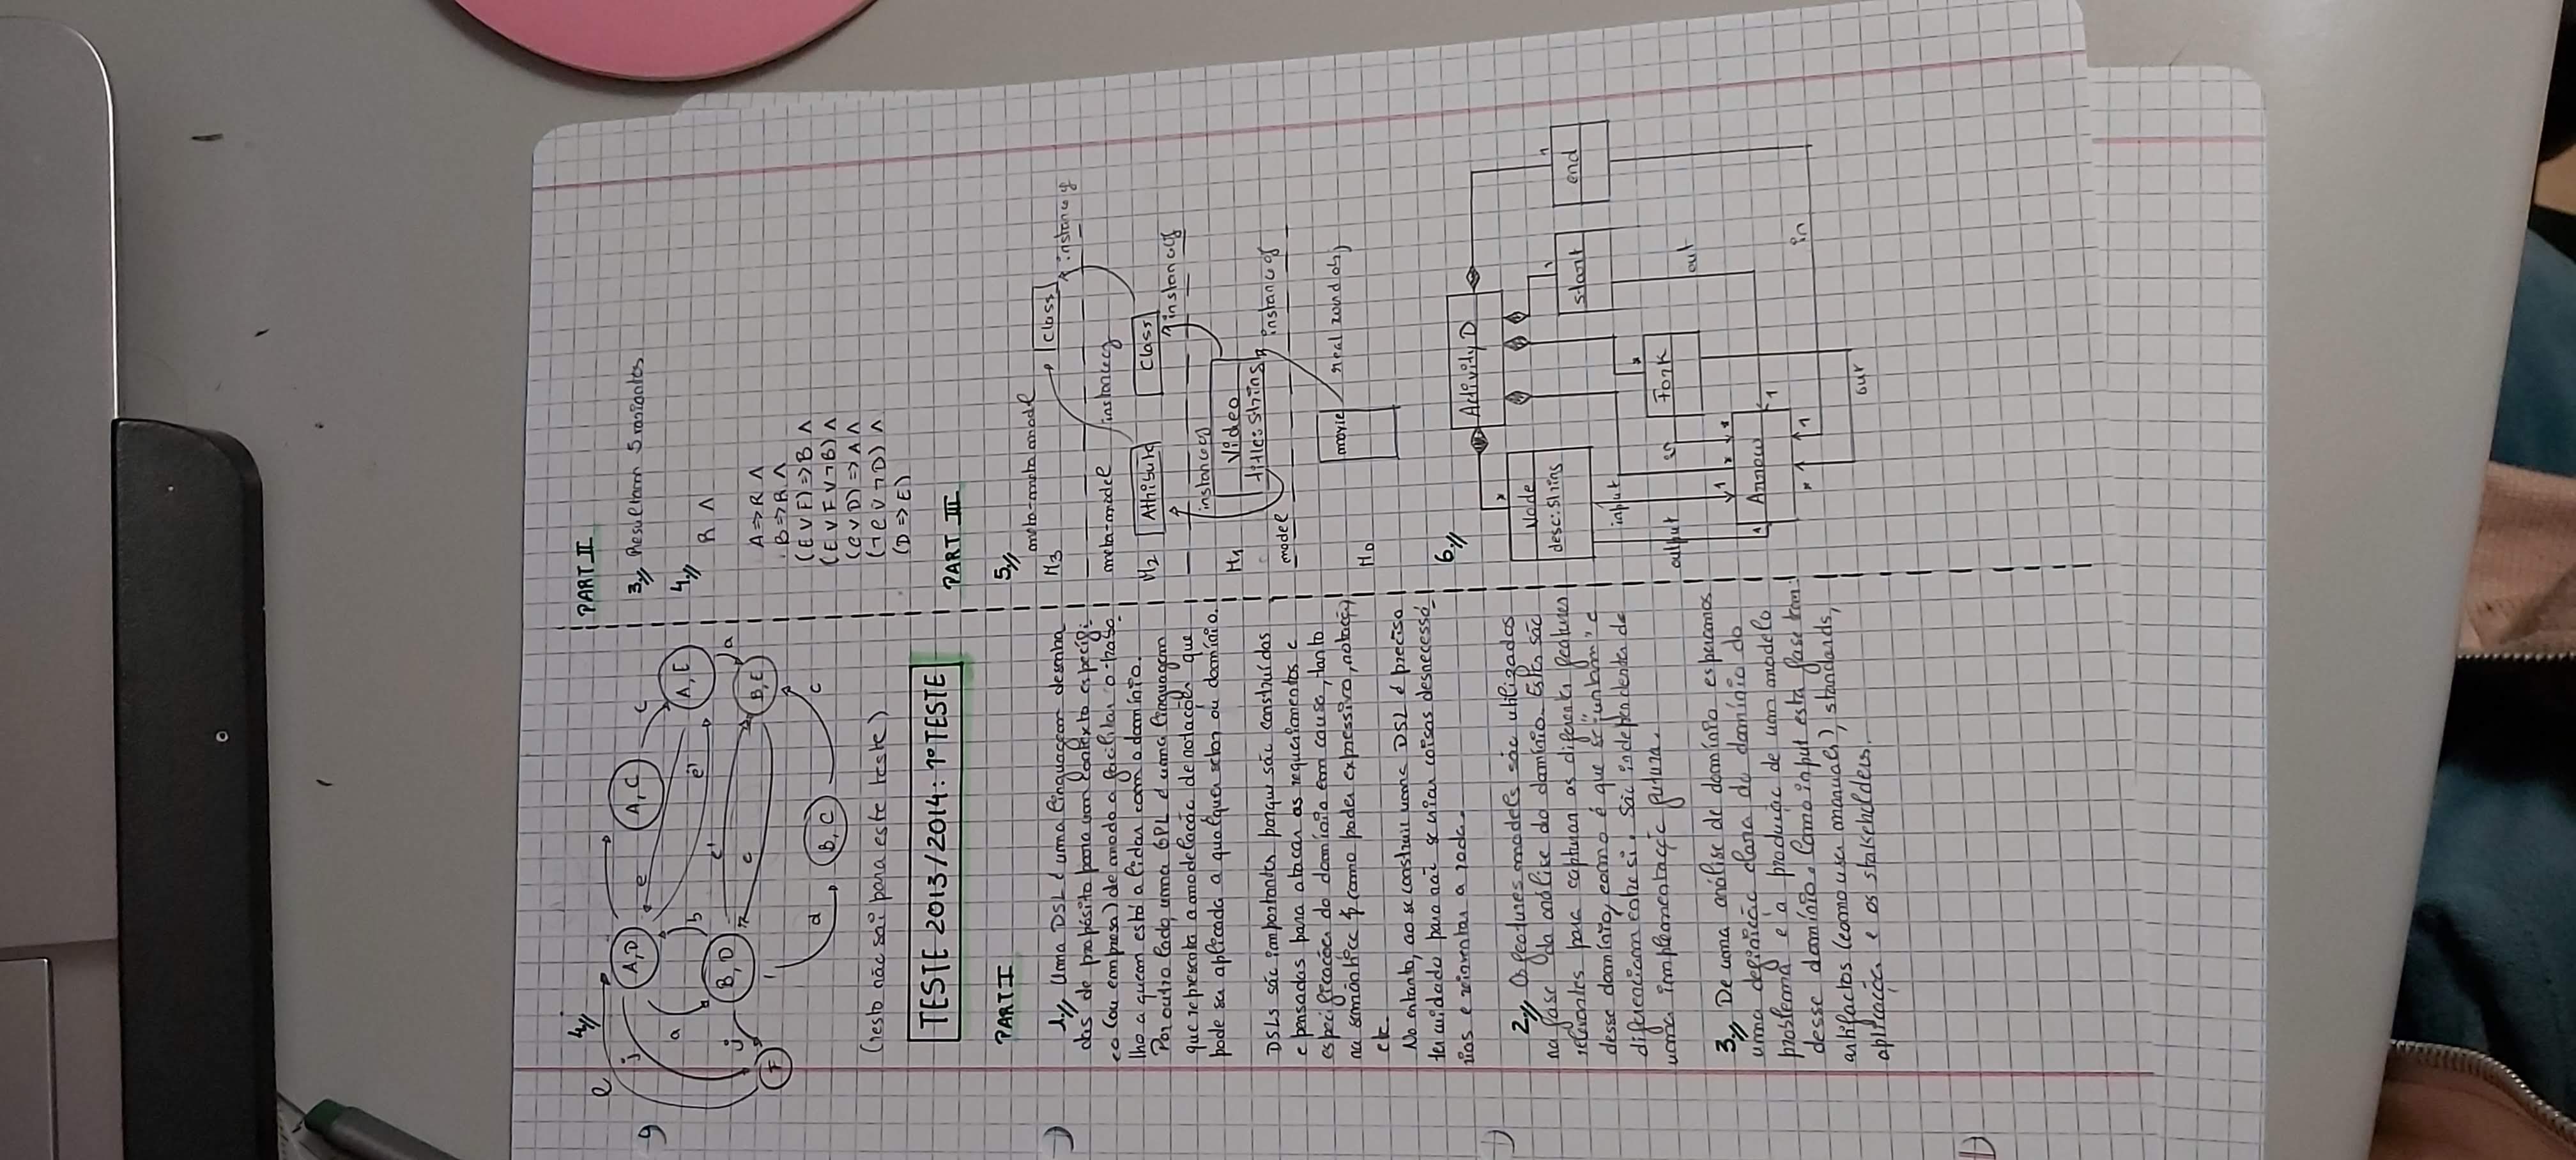 4//
A,D
A,C
A,E
B,D
B,C
B,E
F
l
j
a
b
e
c
e'
e'
e
a
c
d
i
j
(resto não sai para este teste)
TESTE 2013/2014: 1º TESTE
PART I
1.// Uma DSL é uma linguagem desenha
das de propósito para um contexto especifi-
co (ou empresa) de modo a facilitar o traba-
lho a quem está a lidar com o domínio.
Por outro lado, uma GPL é uma linguagem
que representa a modelação de notações que
pode ser aplicada a qualquer setor ou domínio.
DSLs são importantes porque são construídas
e pensadas para atacar os requerimentos e
especificações do domínio em causa, tanto
na semântica como poder expressivo, notação,
etc.
No entanto, ao se construir uma DSL é preciso
ter cuidado para não se criar coisas desnecessá-
rias e reinventar a roda.
2// Os features models são utilizados
na fase da análise do domínio. Estes são
relevantes para capturar as diferentes features
desse domínio, como é que se "juntam" e
diferenciam entre si. São independentes de
uma implementação futura.
3// De uma análise de domínio esperamos
uma definição clara do domínio do
problema e a produção de um modelo
desse domínio. Como input esta fase tem
artifactos (como user manuals), standards,
aplicação e os stakeholders.
PART II
3// Resultam 5 variantes
4.//
R ∧
A => R ∧
B => R ∧
(E ∨ F) => B ∧
(E ∨ F ∨ ¬B) ∧
(C ∨ D) => A ∧
(¬C ∨ ¬D) ∧
(D => E)
PART III
5//
meta-meta model
M3
class
instance of
meta-model
instance of
M2
Attibute
Class
instance of
instance of
M1
Video
title: string
instance of
model
M0
movie
real world obj
6.//
Activity D
Node
desc: string
Fork
start
end
Arrow
input
output
in
out
in
out